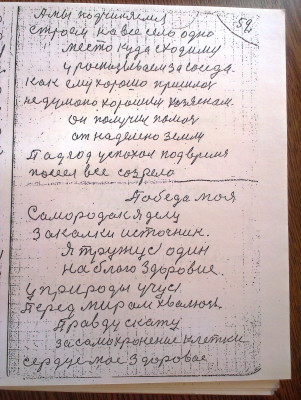 59.
А мы подчиняемся
строем на все село одно
место куда сходиму
у росказиваем за соседа.
Как ему хорошо пришлось
не думано хорошим хозяенам.
Он получил помощ
от наделено земли
Подход успохал под время
посеел все созрело
Победа моя
Самородок я делу
Закалки источник.
Я тружус один
на благо здоровие.
у природы учус
Перед миром хвалюсь.
Правду скажу
за самохронение клетки
сердце мое здоровое